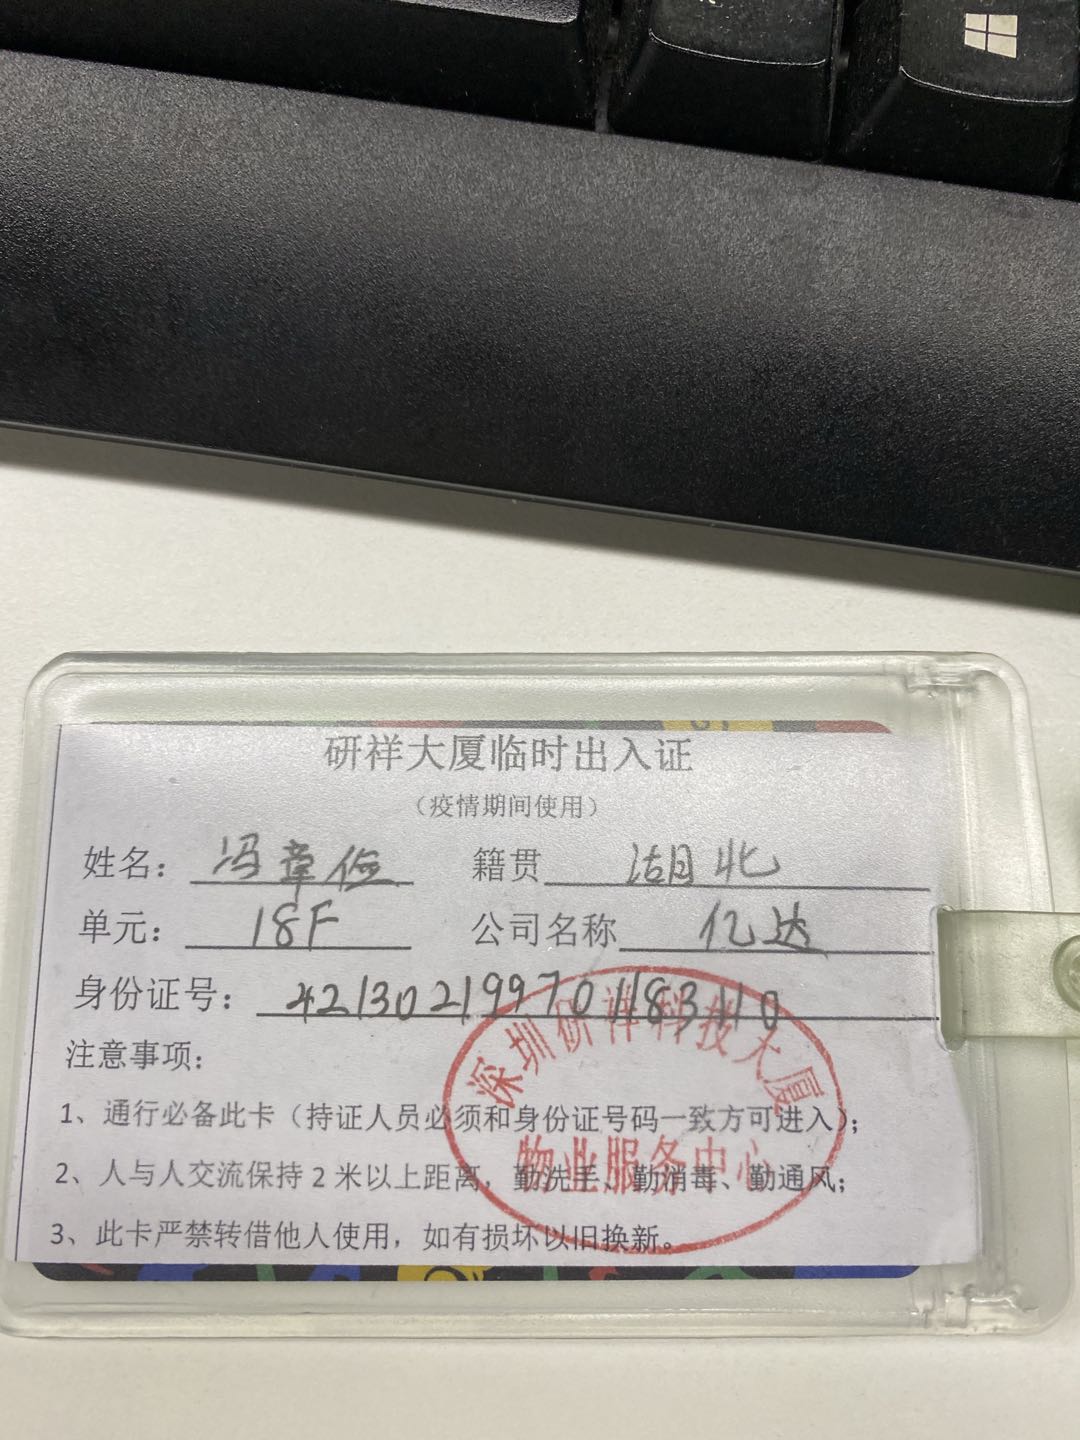 研祥大厦临时出入证
（疫情期间使用）
姓名：冯章俭 籍贯 湖北
单元：18F 公司名称 亿达
身份证号：421302199701183110
注意事项：
1、通行必备此卡（持证人员必须和身份证号码一致方可进入）；
2、人与人交流保持2米以上距离，勤洗手、勤消毒、勤通风；
3、此卡严禁转借他人使用，如有损坏以旧换新。
深圳研祥科技大厦
物业服务中心